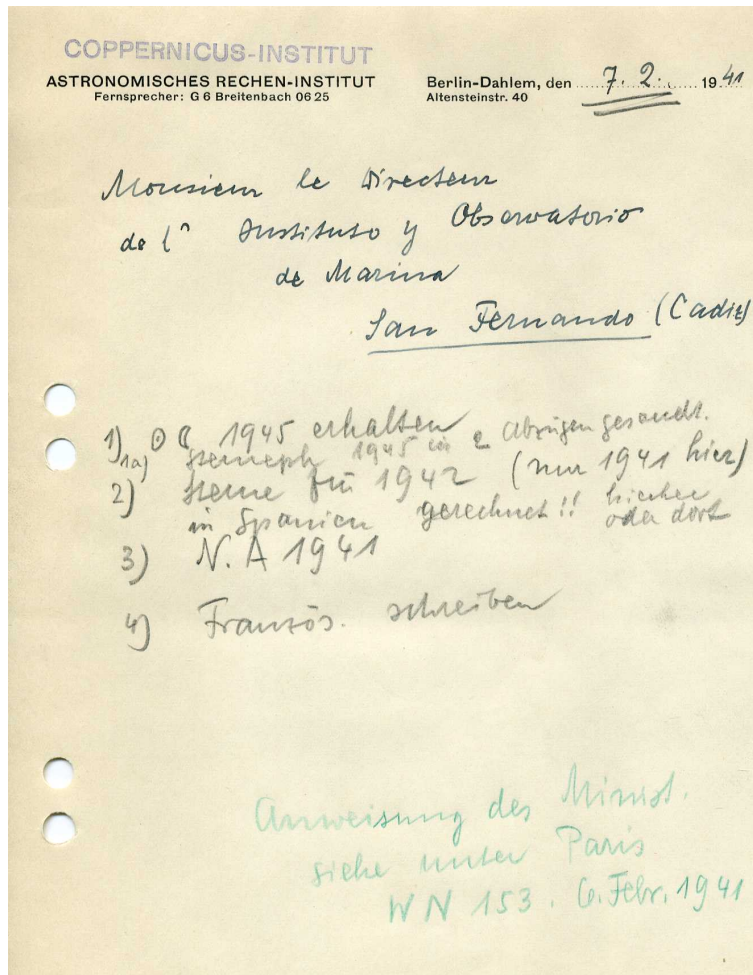 COPPERNICUS-INSTITUT
ASTRONOMISCHES RECHEN-INSTITUT
Fernsprecher: G 6 Breitenbach 06 25
Berlin-Dahlem, den 7. 2. 1941
Altensteinstr. 40
Monsieur le Directeur
de l' Instituto y Observatorio
de Marina
San Fernando (Cadiz)
1) ⊙ ☾ 1945 erhalten
1a) Sterneph 1945 in 2 Abzügen gesandt.
2) Sterne für 1942 (nur 1941 hier)
in Spanien gerechnet!! hierher
oder dort
3) N. A 1941
4) Französ. schreiben
Anweisung des Minist.
siehe unter Paris
WN 153. 6. Febr. 1941